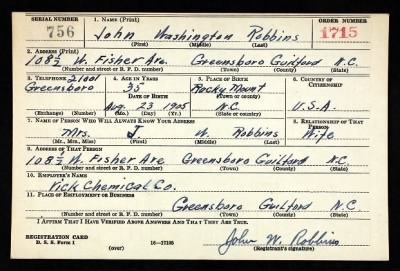 SERIAL NUMBER 1. NAME (Print) ORDER NUMBER
756 John Washington Robbins 1715
(First) (Middle) (Last)
2. ADDRESS (Print)
108½ W. Fisher Ave. Greensboro Guilford N.C.
(Number and street or R. F. D. number) (Town) (County) (State)
3. TELEPHONE 4. AGE IN YEARS 5. PLACE OF BIRTH 6. COUNTRY OF CITIZENSHIP
21001
Greensboro 35 Rocky Mount
DATE OF BIRTH (Town or county)
Aug. 23 1905 N.C. U.S.A.
(Exchange) (Number) (Mo.) (Day) (Yr.) (State or country)
7. NAME OF PERSON WHO WILL ALWAYS KNOW YOUR ADDRESS 8. RELATIONSHIP OF THAT PERSON
Mrs. J. W. Robbins Wife
(Mr., Mrs., Miss) (First) (Middle) (Last)
9. ADDRESS OF THAT PERSON
108½ W. Fisher Ave Greensboro Guilford N.C.
(Number and street or R. F. D. number) (Town) (County) (State)
10. EMPLOYER'S NAME
Vick Chemical Co.
11. PLACE OF EMPLOYMENT OR BUSINESS
Greensboro Guilford N.C.
(Number and street or R. F. D. number) (Town) (County) (State)
I AFFIRM THAT I HAVE VERIFIED ABOVE ANSWERS AND THAT THEY ARE TRUE.
REGISTRATION CARD John W. Robbins
D. S. S. Form 1 (over) 16—17105 (Registrant's signature)